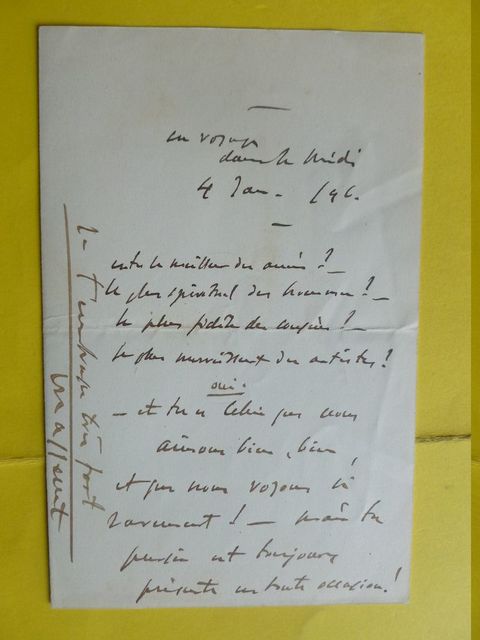 en voyage
dans le Midi
4 Jan. /96.
es-tu le meilleur des amis ! _
le plus spirituel des hommes ! _
le plus fidèle des copains ! _
le plus ravissant des artistes !
oui.
_ et tu es celui que nous
aimons bien, bien,
et que nous voyons si
rarement ! _ mais ta
pensée est toujours
présente en toute occasion !
Je t'embrasse très fort